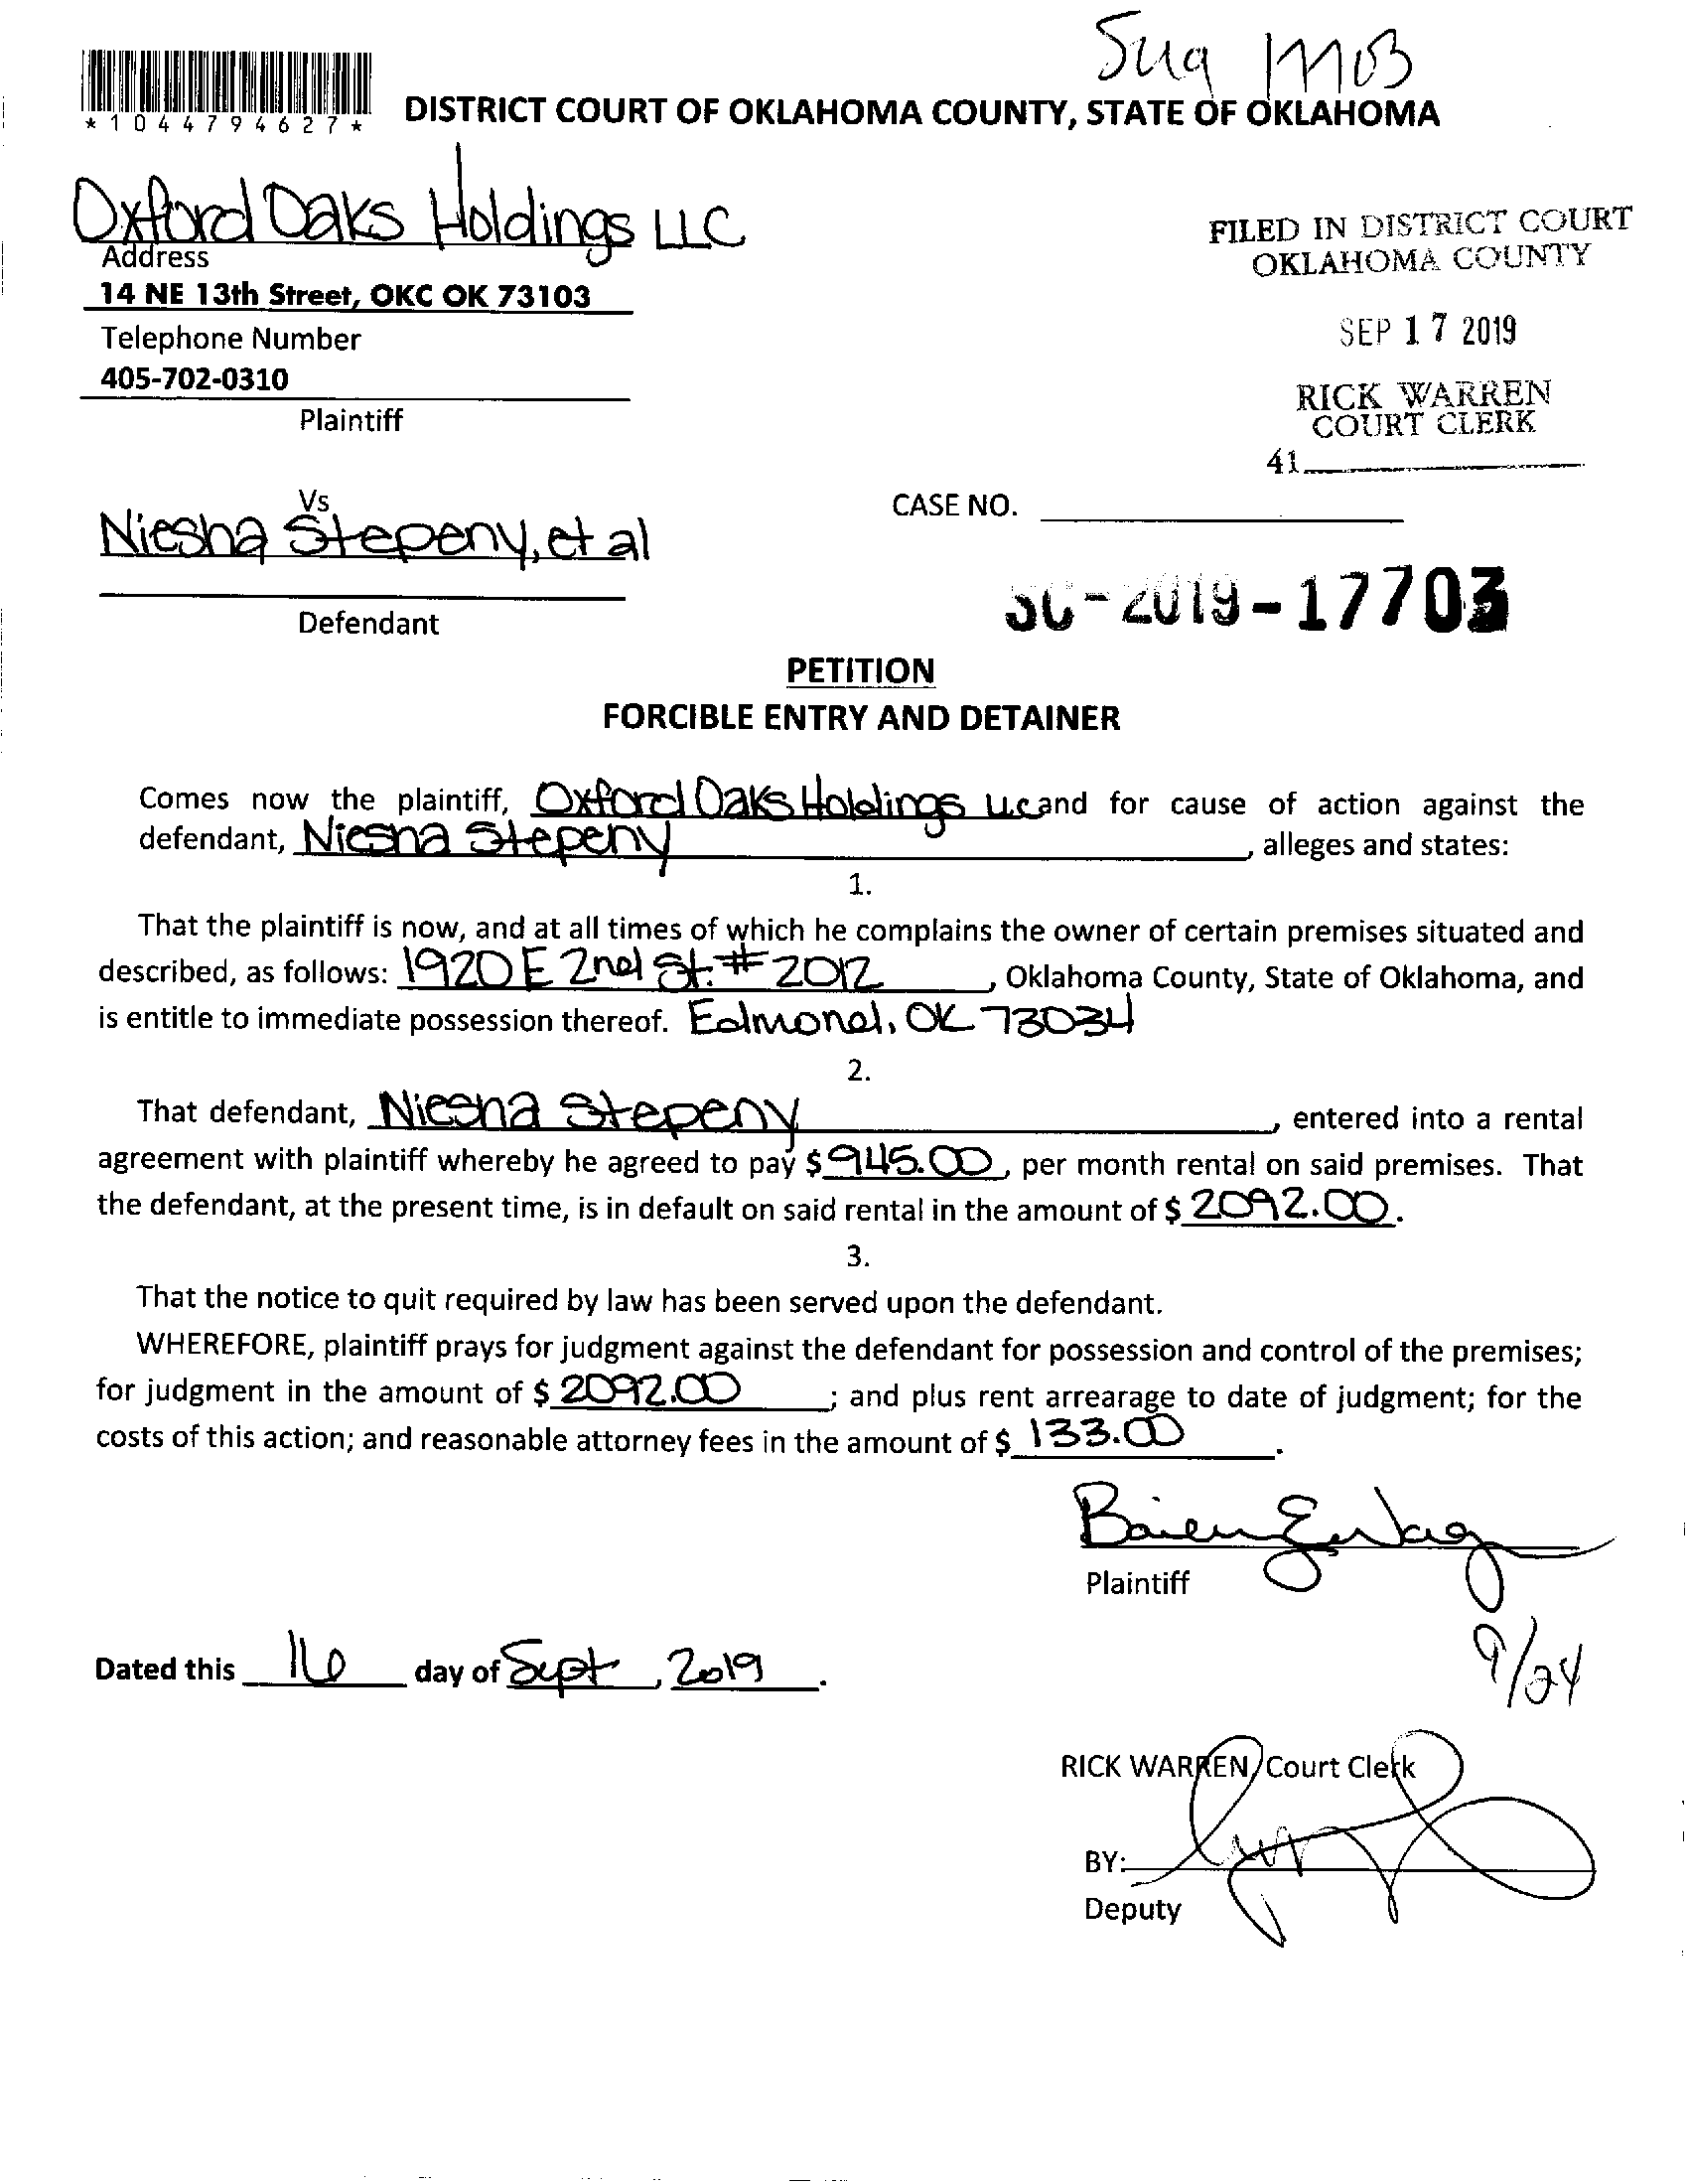 *1044794627*
DISTRICT COURT OF OKLAHOMA COUNTY, STATE OF OKLAHOMA
Oxford Oaks Holdings LLC
Address
14 NE 13th Street, OKC OK 73103
Telephone Number
405-702-0310
Plaintiff
FILED IN DISTRICT COURT
OKLAHOMA COUNTY
SEP 17 2019
RICK WARREN
COURT CLERK
41
Vs
Niesha Stepeny, et al
Defendant
CASE NO.
SC-2019-17703
PETITION
FORCIBLE ENTRY AND DETAINER
Comes now the plaintiff, Oxford Oaks Holdings LLC and for cause of action against the
defendant, Niesha Stepeny, alleges and states:
1.
That the plaintiff is now, and at all times of which he complains the owner of certain premises situated and
described, as follows: 1920 E 2nd St. #2012, Oklahoma County, State of Oklahoma, and
is entitle to immediate possession thereof. Edmond, OK 73034
2.
That defendant, Niesha Stepeny, entered into a rental
agreement with plaintiff whereby he agreed to pay $945.00, per month rental on said premises. That
the defendant, at the present time, is in default on said rental in the amount of $2092.00.
3.
That the notice to quit required by law has been served upon the defendant.
WHEREFORE, plaintiff prays for judgment against the defendant for possession and control of the premises;
for judgment in the amount of $2092.00; and plus rent arrearage to date of judgment; for the
costs of this action; and reasonable attorney fees in the amount of $133.00.
Plaintiff
9/24
Dated this 16 day of Sept, 2019.
RICK WARREN, Court Clerk
BY:
Deputy